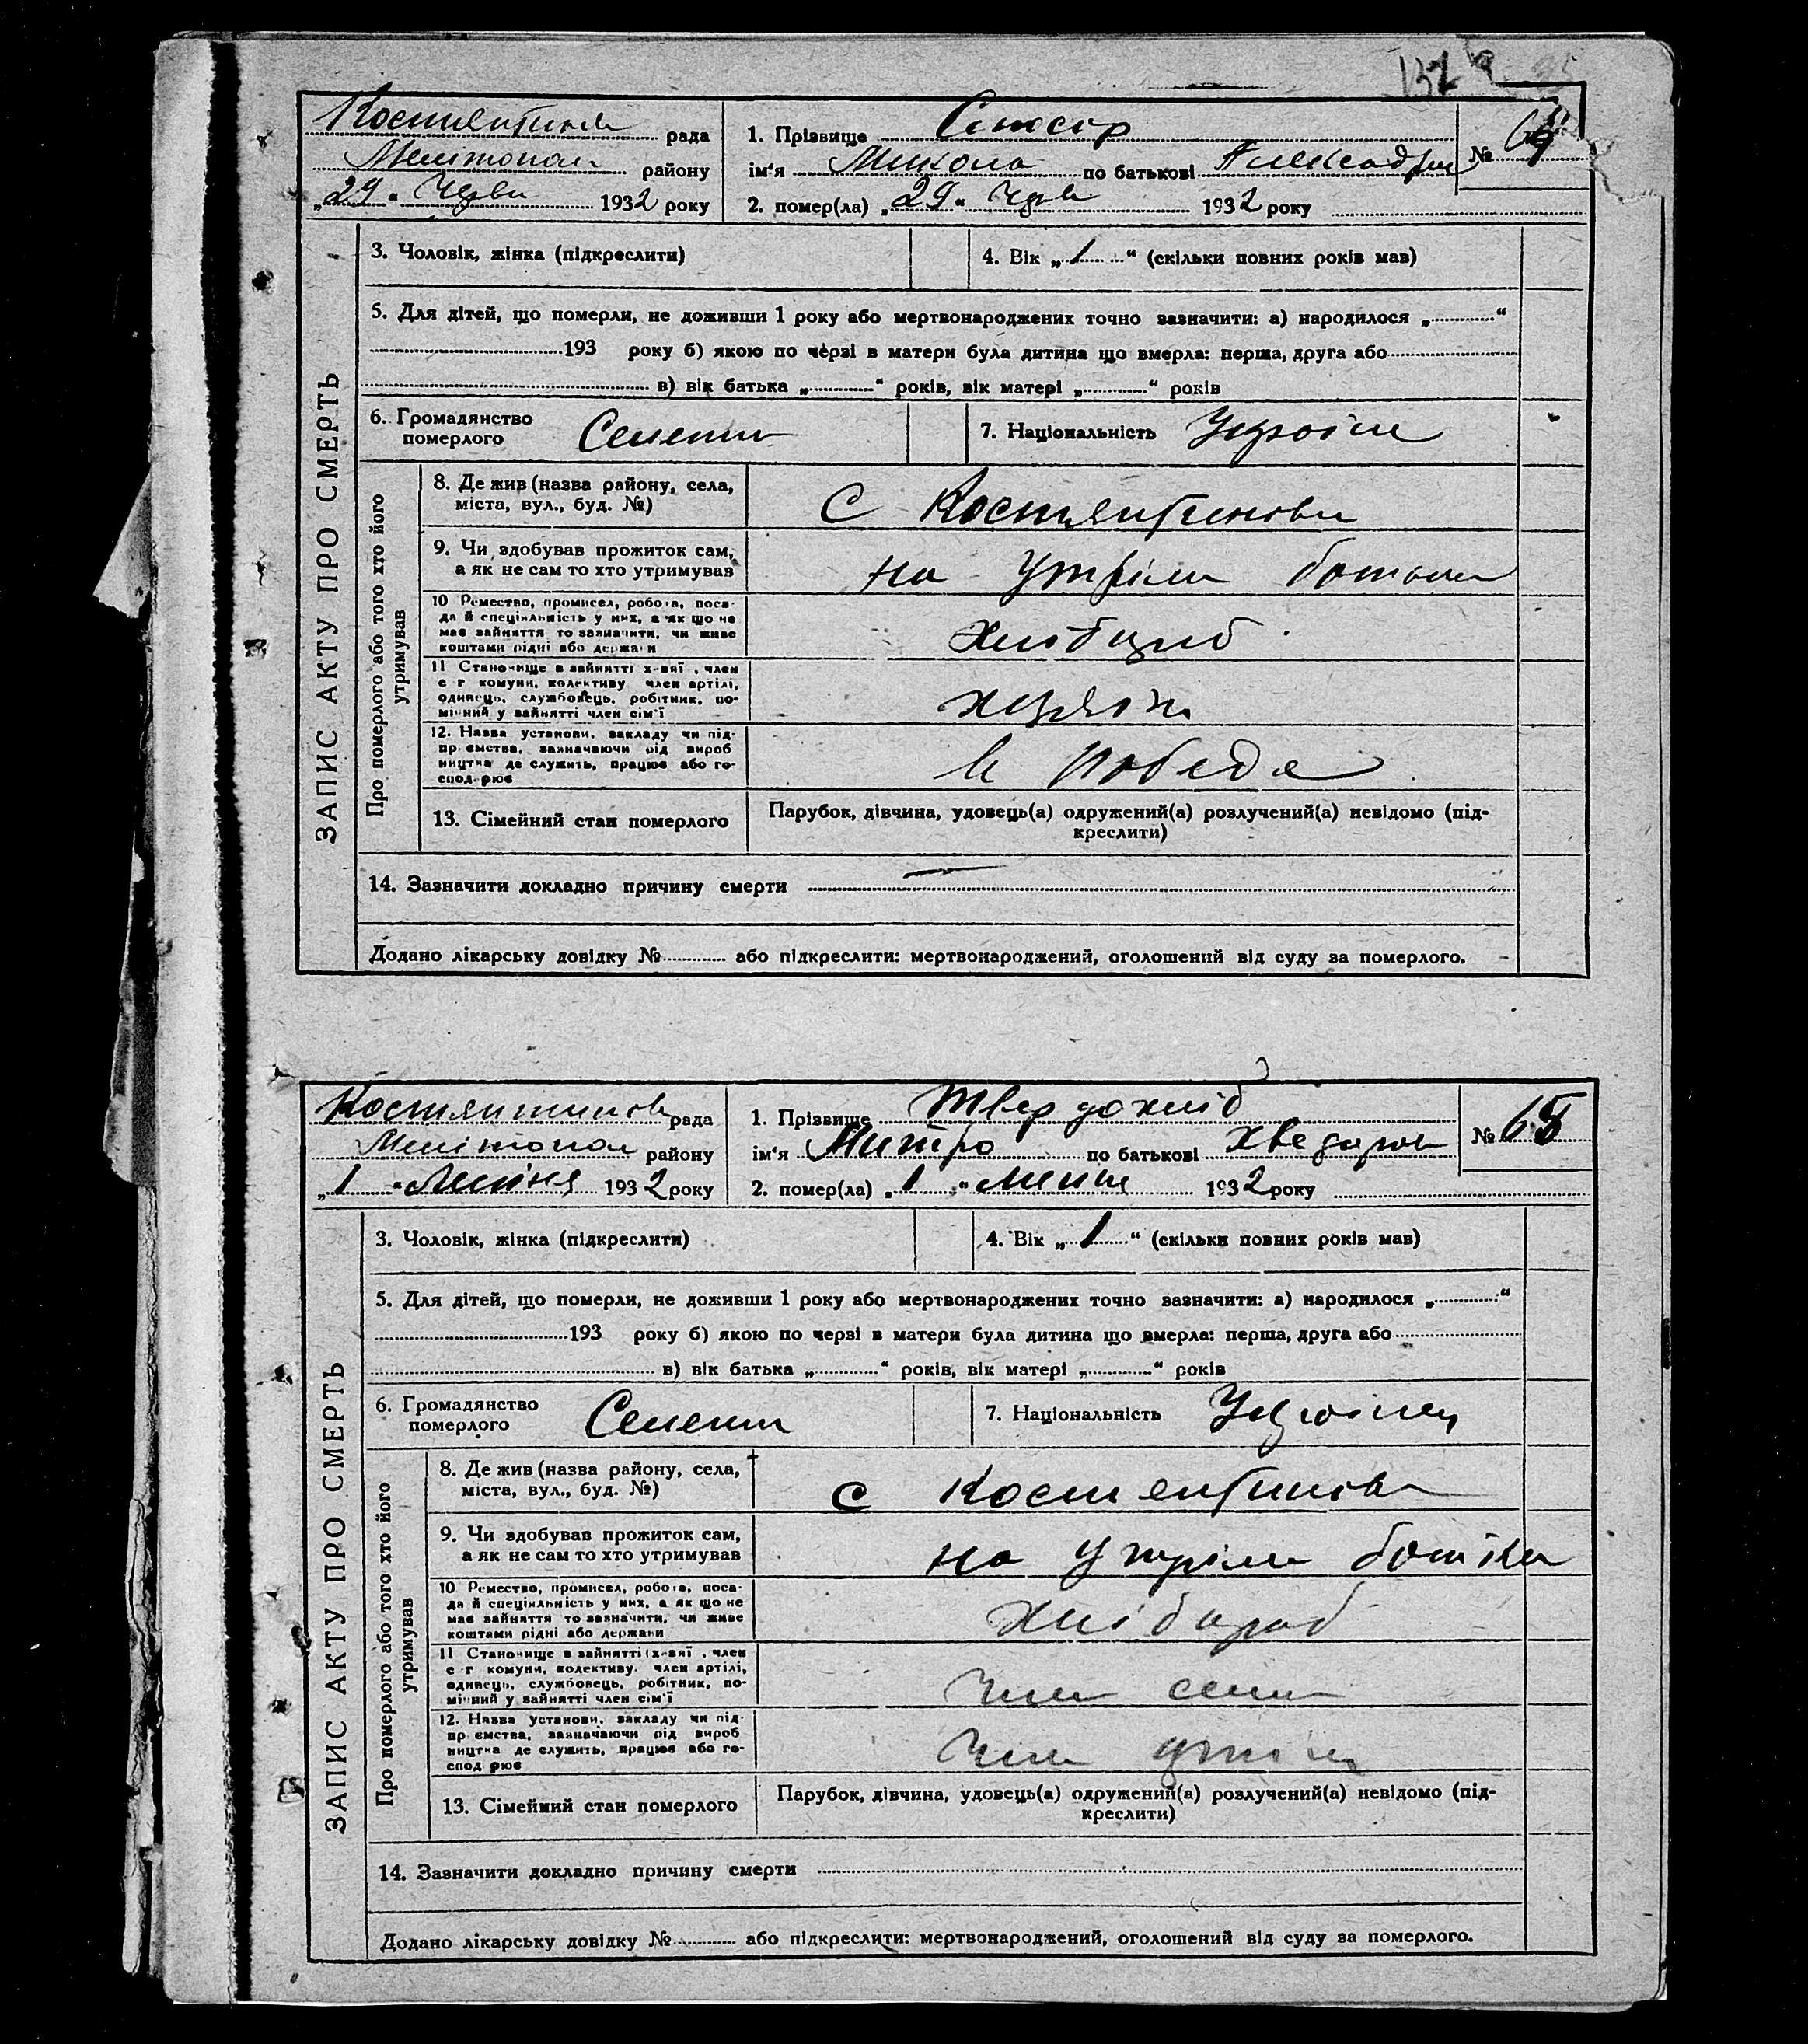 132
Костянтинів рада
1. Прізвище
№ 64
Мелітопол району
ім'я Микола по батькові Александр
„29“ Черв 1932 року
2. помер(ла) „29“ Черв 1932 року
3. Чоловік, жінка (підкреслити)
4. Вік „1“ (скільки повних років мав)
5. Для дітей, що померли, не доживши 1 року або мертвонароджених точно зазначити: а) народилося „ “
193 року б) якою по черзі в матери була дитина що вмерла: перша, друга або
в) вік батька „ “ років, вік матері „ “ років
6. Громадянство
померлого
Селенин
7. Національність Україн
ЗАПИС АКТУ ПРО СМЕРТЬ
Про померлого або того хто його
утримував
8. Де жив (назва району, села,
міста, вул., буд. №)
С Костянтиновк
9. Чи здобував прожиток сам,
а як не сам то хто утримував
на утрім батьки
10 Ремество, промисел, робота, поса-
да й спеціяльність у них, а як що не
має зайняття то зазначити, чи живе
коштами рідні або держави
хлібороб
11 Становище в зайнятті х-вяї, член
с г комуни, колективу член артілі,
одинець, службовець, робітник, по-
мічний у зайнятті член сім'ї
12. Назва установи, закладу чи під-
пр ємства, зазначаючи рід вироб
ництва де служить, працює або го-
спод рює
к Победа
13. Сімейний стан померлого
Парубок, дівчина, удовець(а) одружений(а) розлучений(а) невідомо (під-
креслити)
14. Зазначити докладно причину смерти —
Додано лікарську довідку № або підкреслити: мертвонароджений, оголошений від суду за померлого.
Костянтинов рада
1. Прізвище Твердохліб
№ 65
Мелітопол району
ім'я Митро по батькові Хведоров
„1“ Липня 1932 року
2. помер(ла) „1“ Липня 1932 року
3. Чоловік, жінка (підкреслити)
4. Вік „1“ (скільки повних років мав)
5. Для дітей, що померли, не доживши 1 року або мертвонароджених точно зазначити: а) народилося „ “
193 року б) якою по черзі в матери була дитина що вмерла: перша, друга або
в) вік батька „ “ років, вік матері „ “ років
6. Громадянство
померлого
Селенин
7. Національність Українец
ЗАПИС АКТУ ПРО СМЕРТЬ
Про померлого або того хто його
утримував
8. Де жив (назва району, села,
міста, вул., буд. №)
с Костянтинівк
9. Чи здобував прожиток сам,
а як не сам то хто утримував
на утрім батьки
10 Ремество, промисел, робота, поса-
да й спеціяльність у них, а як що не
має зайняття то зазначити, чи живе
коштами рідні або держави
хлібороб
11 Становище в зайнятті х-вяї, член
с г комуни, колективу член артілі,
одинець, службовець, робітник, по-
мічний у зайнятті член сім'ї
член семи
12. Назва установи, закладу чи під-
пр ємства, зазначаючи рід вироб
ництва де служить, працює або го-
спод рює
член
13. Сімейний стан померлого
Парубок, дівчина, удовець(а) одружений(а) розлучений(а) невідомо (під-
креслити)
14. Зазначити докладно причину смерти
Додано лікарську довідку № або підкреслити: мертвонароджений, оголошений від суду за померлого.